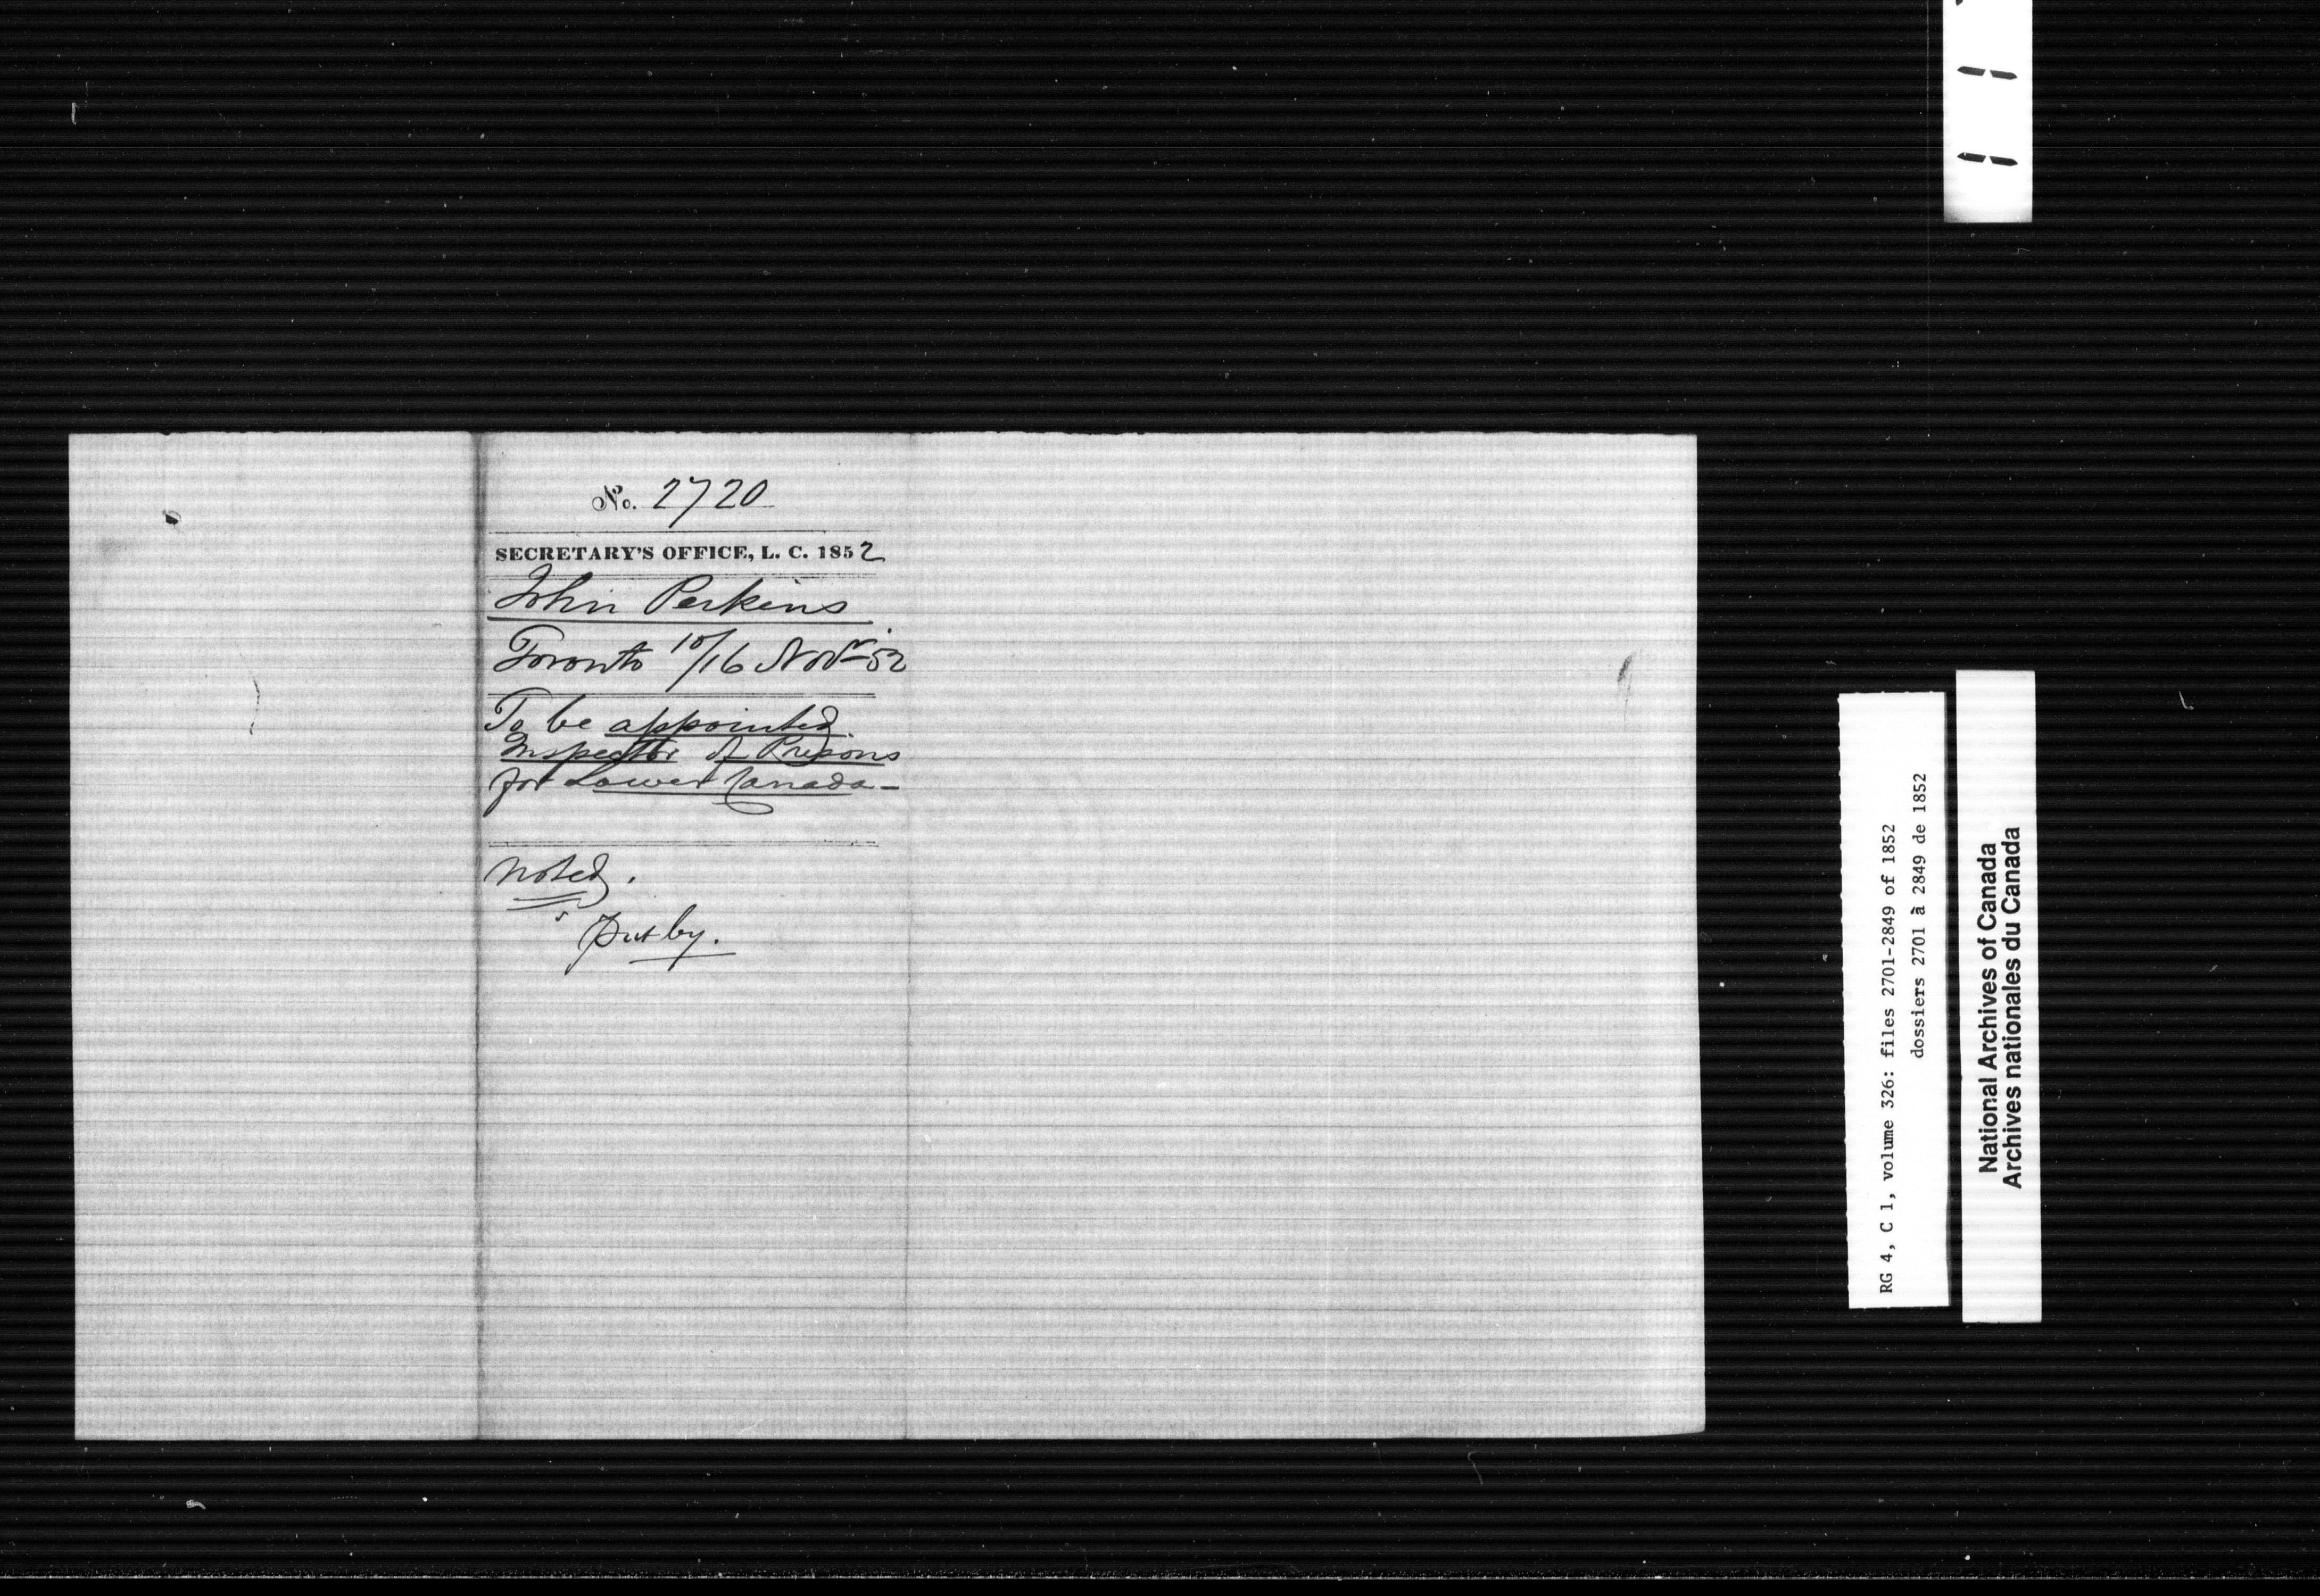 No. 2720
SECRETARY'S OFFICE, L. C. 1852
John Perkins
Toronto 10/16 Novr 52
To be appointed
Inspector of Prisons
for Lower Canada -
Noted.
Put by.
RG 4, C 1, volume 326: files 2701-2849 of 1852
dossiers 2701 à 2849 de 1852
National Archives of Canada
Archives nationales du Canada